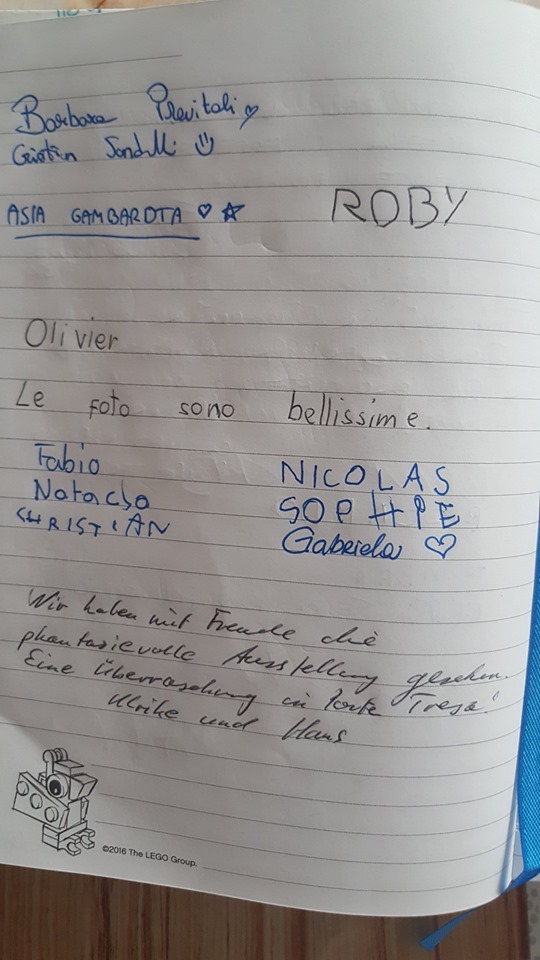 Barbara Previtali ♡
Cristian
ASIA GAMBAROTA ♡ ☆
ROBY
Olivier
Le foto sono bellissime.
Fabio
Natacha
CHRISTIAN
NICOLAS
SOPHIE
Gabriela ♡
Wir haben mit Freude die
phantasievolle Ausstellung gesehen.
Eine Überraschung in Ponte Tresa!
Ulrike und Hans
©2016 The LEGO Group.